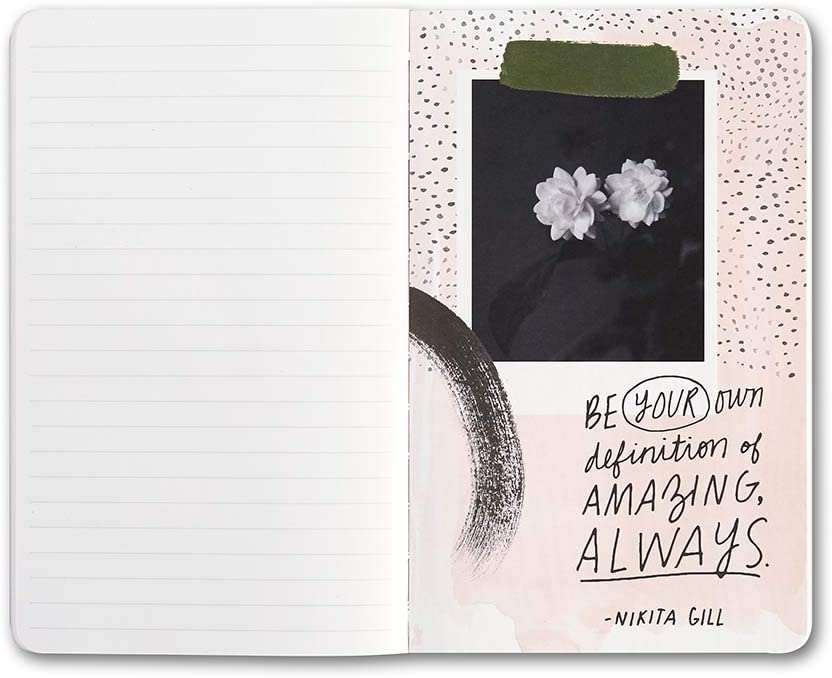 BE YOUR own
definition of
AMAZING,
ALWAYS.
-NIKITA GILL